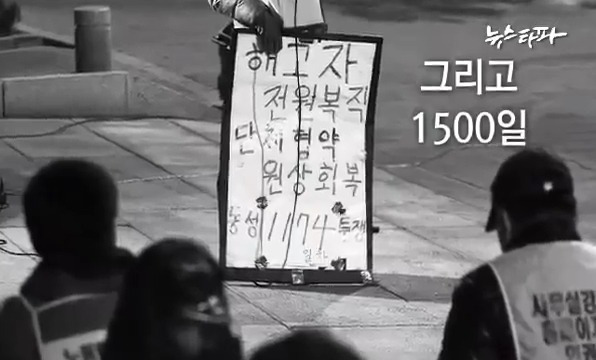 뉴스타파
그리고
1500일
해고자
전원복직
단체협약
원상회복
농성 1174 투쟁
일차